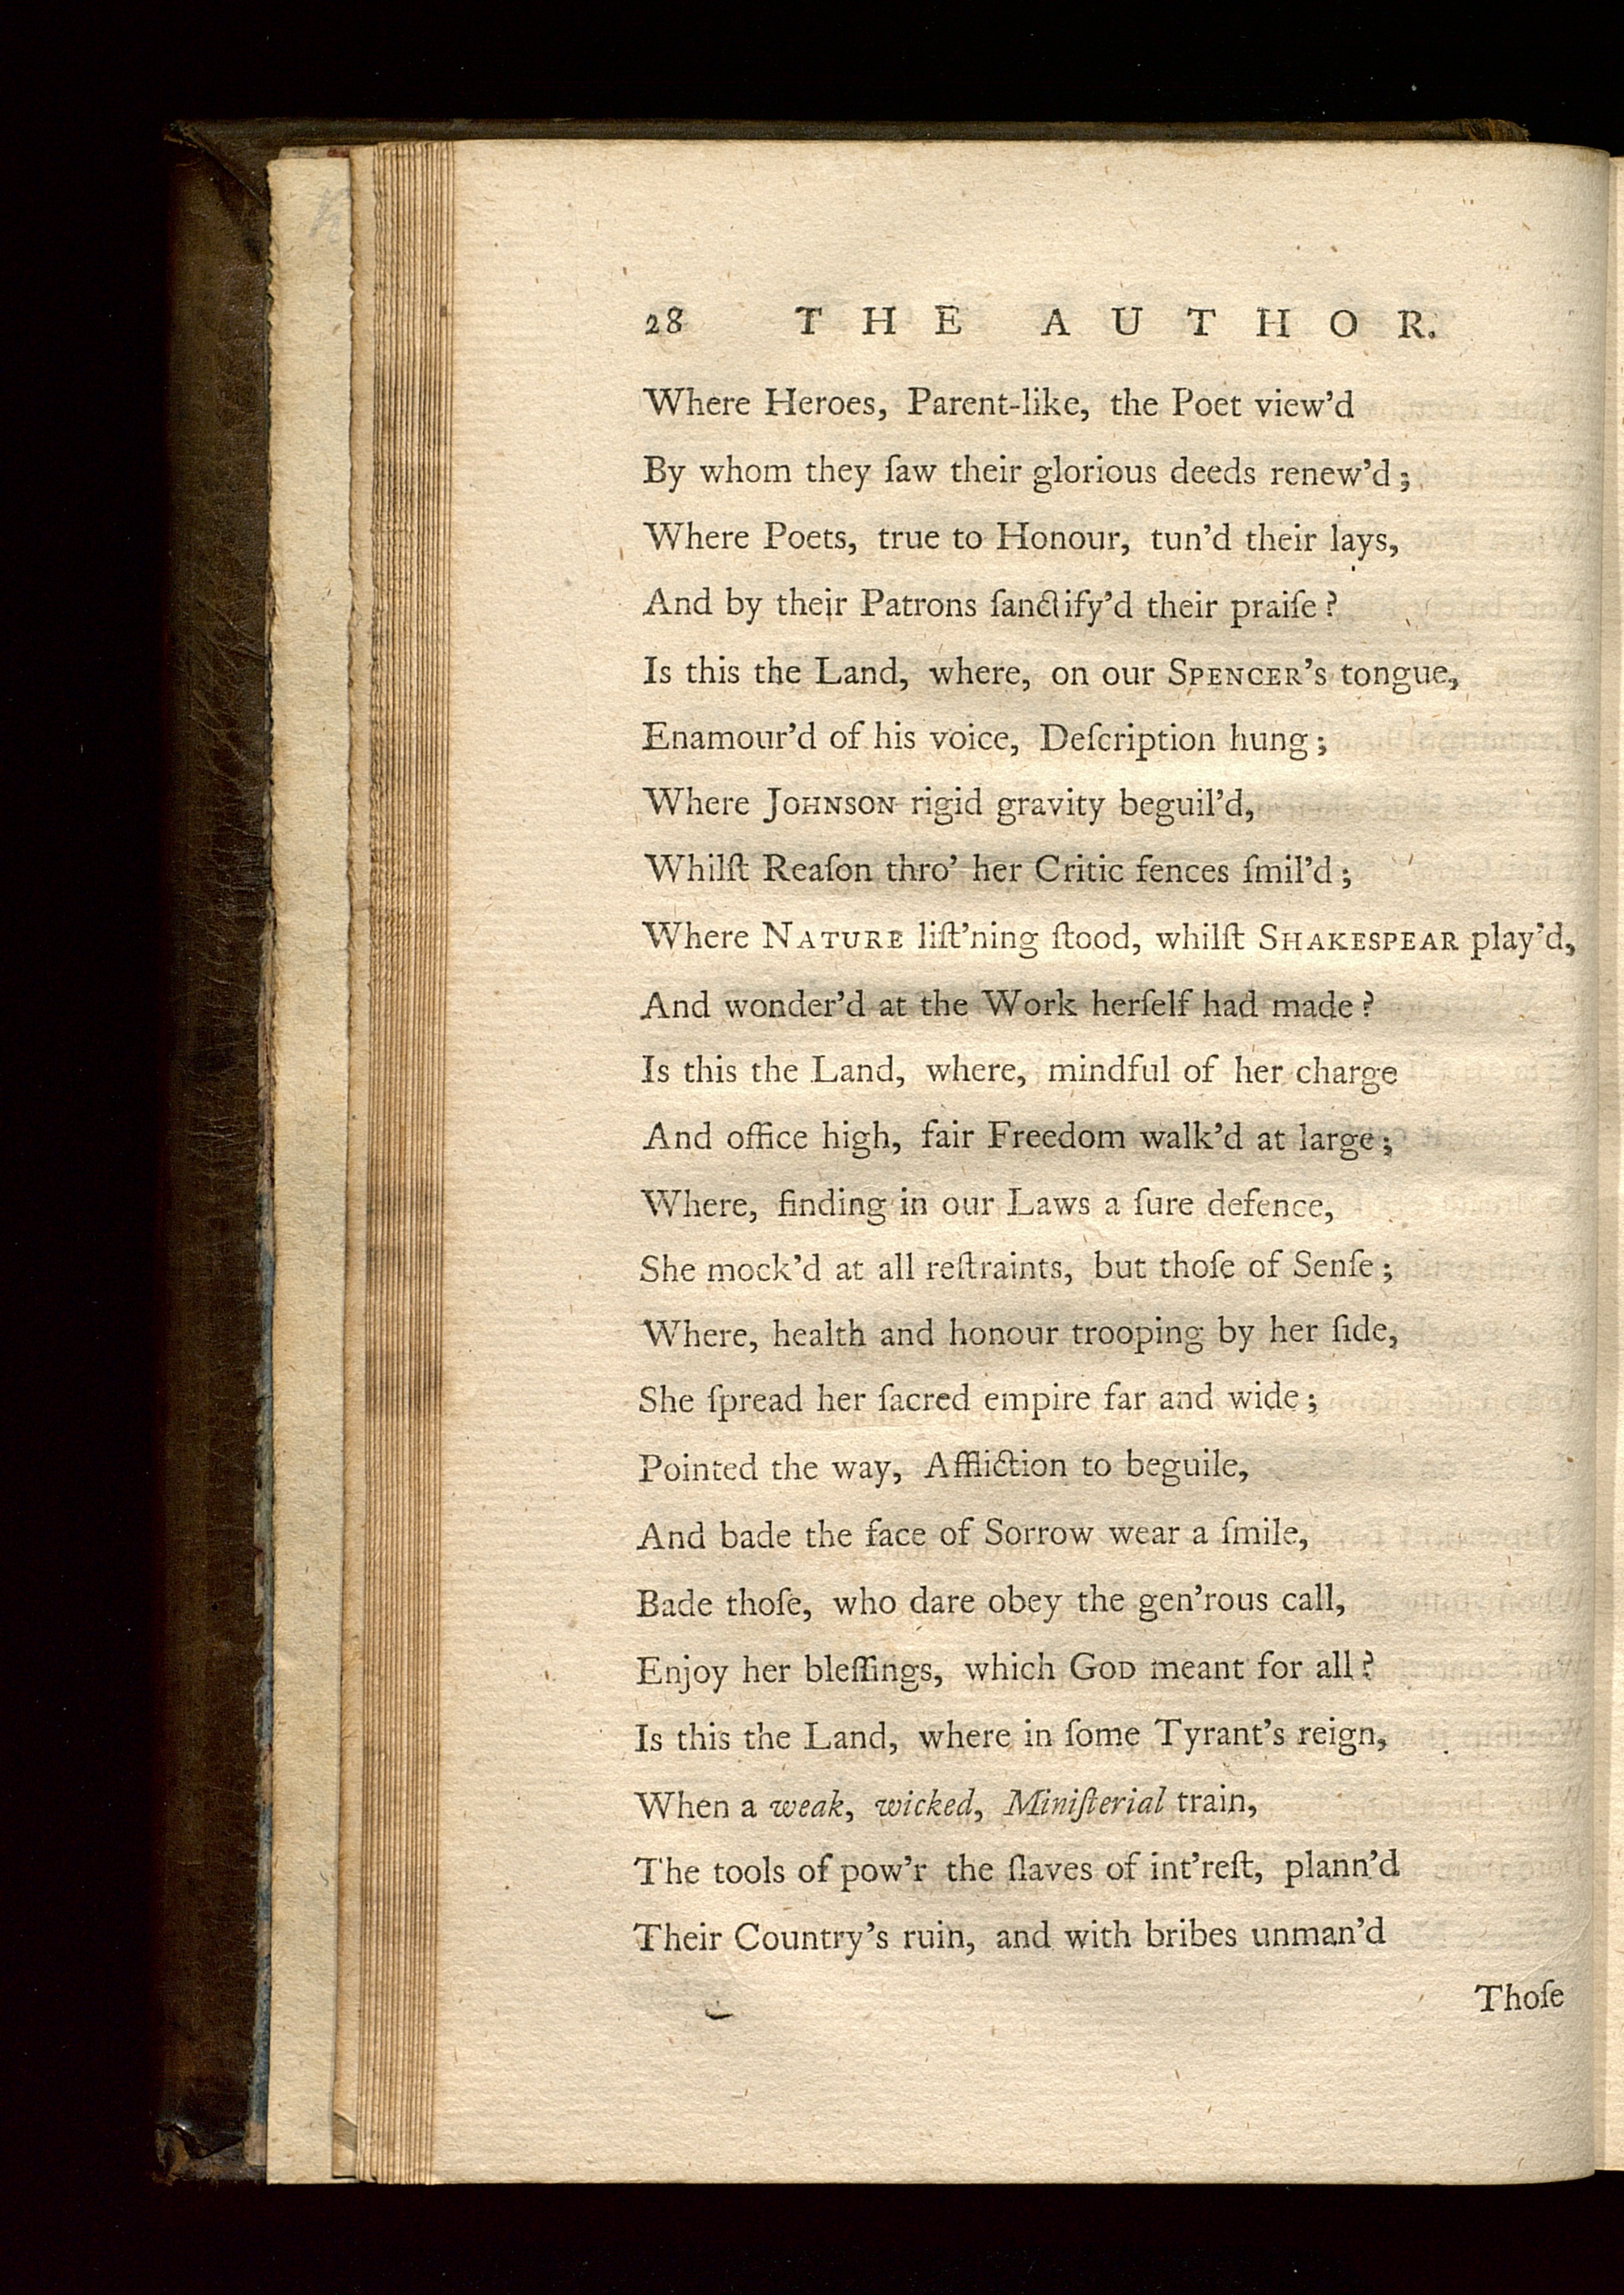 28 THE AUTHOR.
Where Heroes, Parent-like, the Poet view'd
By whom they ſaw their glorious deeds renew'd;
Where Poets, true to Honour, tun'd their lays,
And by their Patrons ſanctify'd their praiſe?
Is this the Land, where, on our SPENCER's tongue,
Enamour'd of his voice, Deſcription hung;
Where JOHNSON rigid gravity beguil'd,
Whilſt Reaſon thro' her Critic fences ſmil'd;
Where NATURE liſt'ning ſtood, whilſt SHAKESPEAR play'd,
And wonder'd at the Work herſelf had made?
Is this the Land, where, mindful of her charge
And office high, fair Freedom walk'd at large;
Where, finding in our Laws a ſure defence,
She mock'd at all reſtraints, but thoſe of Senſe;
Where, health and honour trooping by her ſide,
She ſpread her ſacred empire far and wide;
Pointed the way, Affliction to beguile,
And bade the face of Sorrow wear a ſmile,
Bade thoſe, who dare obey the gen'rous call,
Enjoy her bleſſings, which GOD meant for all?
Is this the Land, where in ſome Tyrant's reign,
When a weak, wicked, Miniſterial train,
The tools of pow'r the ſlaves of int'reſt, plann'd
Their Country's ruin, and with bribes unman'd
Thoſe